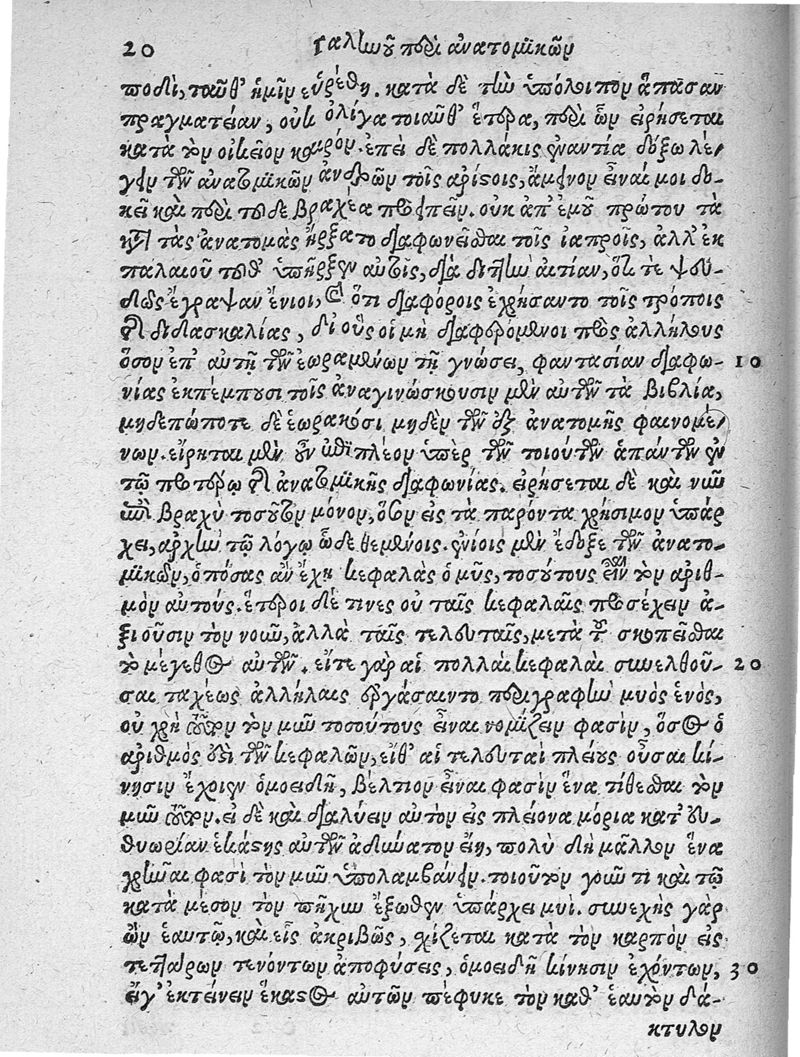 20 Γαληνοῦ περὶ ἀνατομικῶν
ποδὶ, ταῦθ' ἡμῖν εὑρέθη. κατὰ δὲ τὴν ὑπόλοιπον ἅπασαν
πραγματείαν, οὐκ ὀλίγα τοιαῦθ' ἕτερα, περὶ ὧν εἰρήσεται
κατὰ τὸν οἰκεῖον καιρόν. ἐπεὶ δὲ πολλάκις ἐναντία δόξω λέ-
γειν τῶν ἀνατομικῶν ἀνδρῶν τοῖς ἀρίστοις, ἄμεινον εἶναί μοι δο-
κεῖ καὶ περὶ τοῦδε βραχέα προειπεῖν. οὐκ ἀπ' ἐμοῦ πρώτου τὰ
κατὰ τὰς ἀνατομὰς ἤρξατο διαφωνεῖσθαι τοῖς ἰατροῖς, ἀλλ' ἐκ
παλαιοῦ τοῦθ' ὑπῆρξεν αὐτοῖς, διὰ διττὴν αἰτίαν, ὅτι τε ψευ-
δῶς ἔγραψαν ἔνιοι, καὶ ὅτι διαφόροις ἐχρήσαντο τοῖς τρόποις
τῆς διδασκαλίας, δι' οὓς οἱ μὴ διαφερόμενοι πρὸς ἀλλήλους
ὅσον ἐπ' αὐτῇ τῶν ἑωραμένων τῇ γνώσει, φαντασίαν διαφω- 10
νίας ἐκπέμπουσι τοῖς ἀναγινώσκουσιν μὲν αὐτῶν τὰ βιβλία,
μηδεπώποτε δὲ ἑωρακόσι μηδὲν τῶν ἐξ ἀνατομῆς φαινομέ-
νων. εἴρηται μὲν οὖν ἐπὶ πλέον ὑπὲρ τῶν τοιούτων ἁπάντων ἐν
τῷ προτέρῳ τῆς ἀνατομικῆς διαφωνίας. εἰρήσεται δὲ καὶ νῦν
ἐπὶ βραχὺ τοσοῦτον μόνον, ὅσον εἰς τὰ παρόντα χρήσιμον ὑπάρ
χει, ἀρχὴν τῷ λόγῳ ὧδε θεμένοις. ἐνίοις μὲν ἔδοξε τῶν ἀνατο-
μικῶν, ὁπόσας ἂν ἔχῃ κεφαλὰς ὁ μῦς, τοσούτους εἶναι τὸν ἀριθ-
μὸν αὐτούς. ἕτεροι δέ τινες οὐ ταῖς κεφαλαῖς προσέχειν ἀ-
ξιοῦσιν τὸν νοῦν, ἀλλὰ ταῖς τελευταῖς, μετὰ τοῦ σκοπεῖσθαι
τὸ μέγεθος αὐτῶν. εἴτε γὰρ αἱ πολλαὶ κεφαλαὶ συνελθοῦ- 20
σαι ταχέως ἀλλήλαις ἐργάσαιντο περιγραφὴν μυὸς ἑνός,
οὐ χρὴ τοῦτον τὸν μῦν τοσούτους εἶναι νομίζειν φασὶν, ὅσος ὁ
ἀριθμὸς ἐστὶ τῶν κεφαλῶν, εἴθ' αἱ τελευταὶ πλείους οὖσαι κί-
νησιν ἔχοιεν ὁμοειδῆ, βέλτιον εἶναι φασὶν ἕνα τίθεσθαι τὸν
μῦν τοῦτον. εἰ δὲ καὶ διαλύειν αὐτὸν εἰς πλείονα μόρια κατ' εὐ-
θυωρίαν ἑκάστης αὐτῶν ἀδύνατον εἴη, πολὺ δὴ μᾶλλον ἕνα
χρῆναι φασὶ τὸν μῦν ὑπολαμβάνειν. τοιοῦτον γοῦν τι καὶ τῷ
κατὰ μέσον τὸν πῆχυν ἔξωθεν ὑπάρχει μυί. συνεχὴς γὰρ
ὢν ἑαυτῷ, καὶ εἷς ἀκριβῶς, σχίζεται κατὰ τὸν καρπὸν εἰς
τεττάρων τενόντων ἀποφύσεις, ὁμοειδῆ κίνησιν ἐχόντων, 30
εἴγ' ἐκτείνειν ἕκαστος αὐτῶν πέφυκε τὸν καθ' ἑαυτὸν δά-
κτυλον